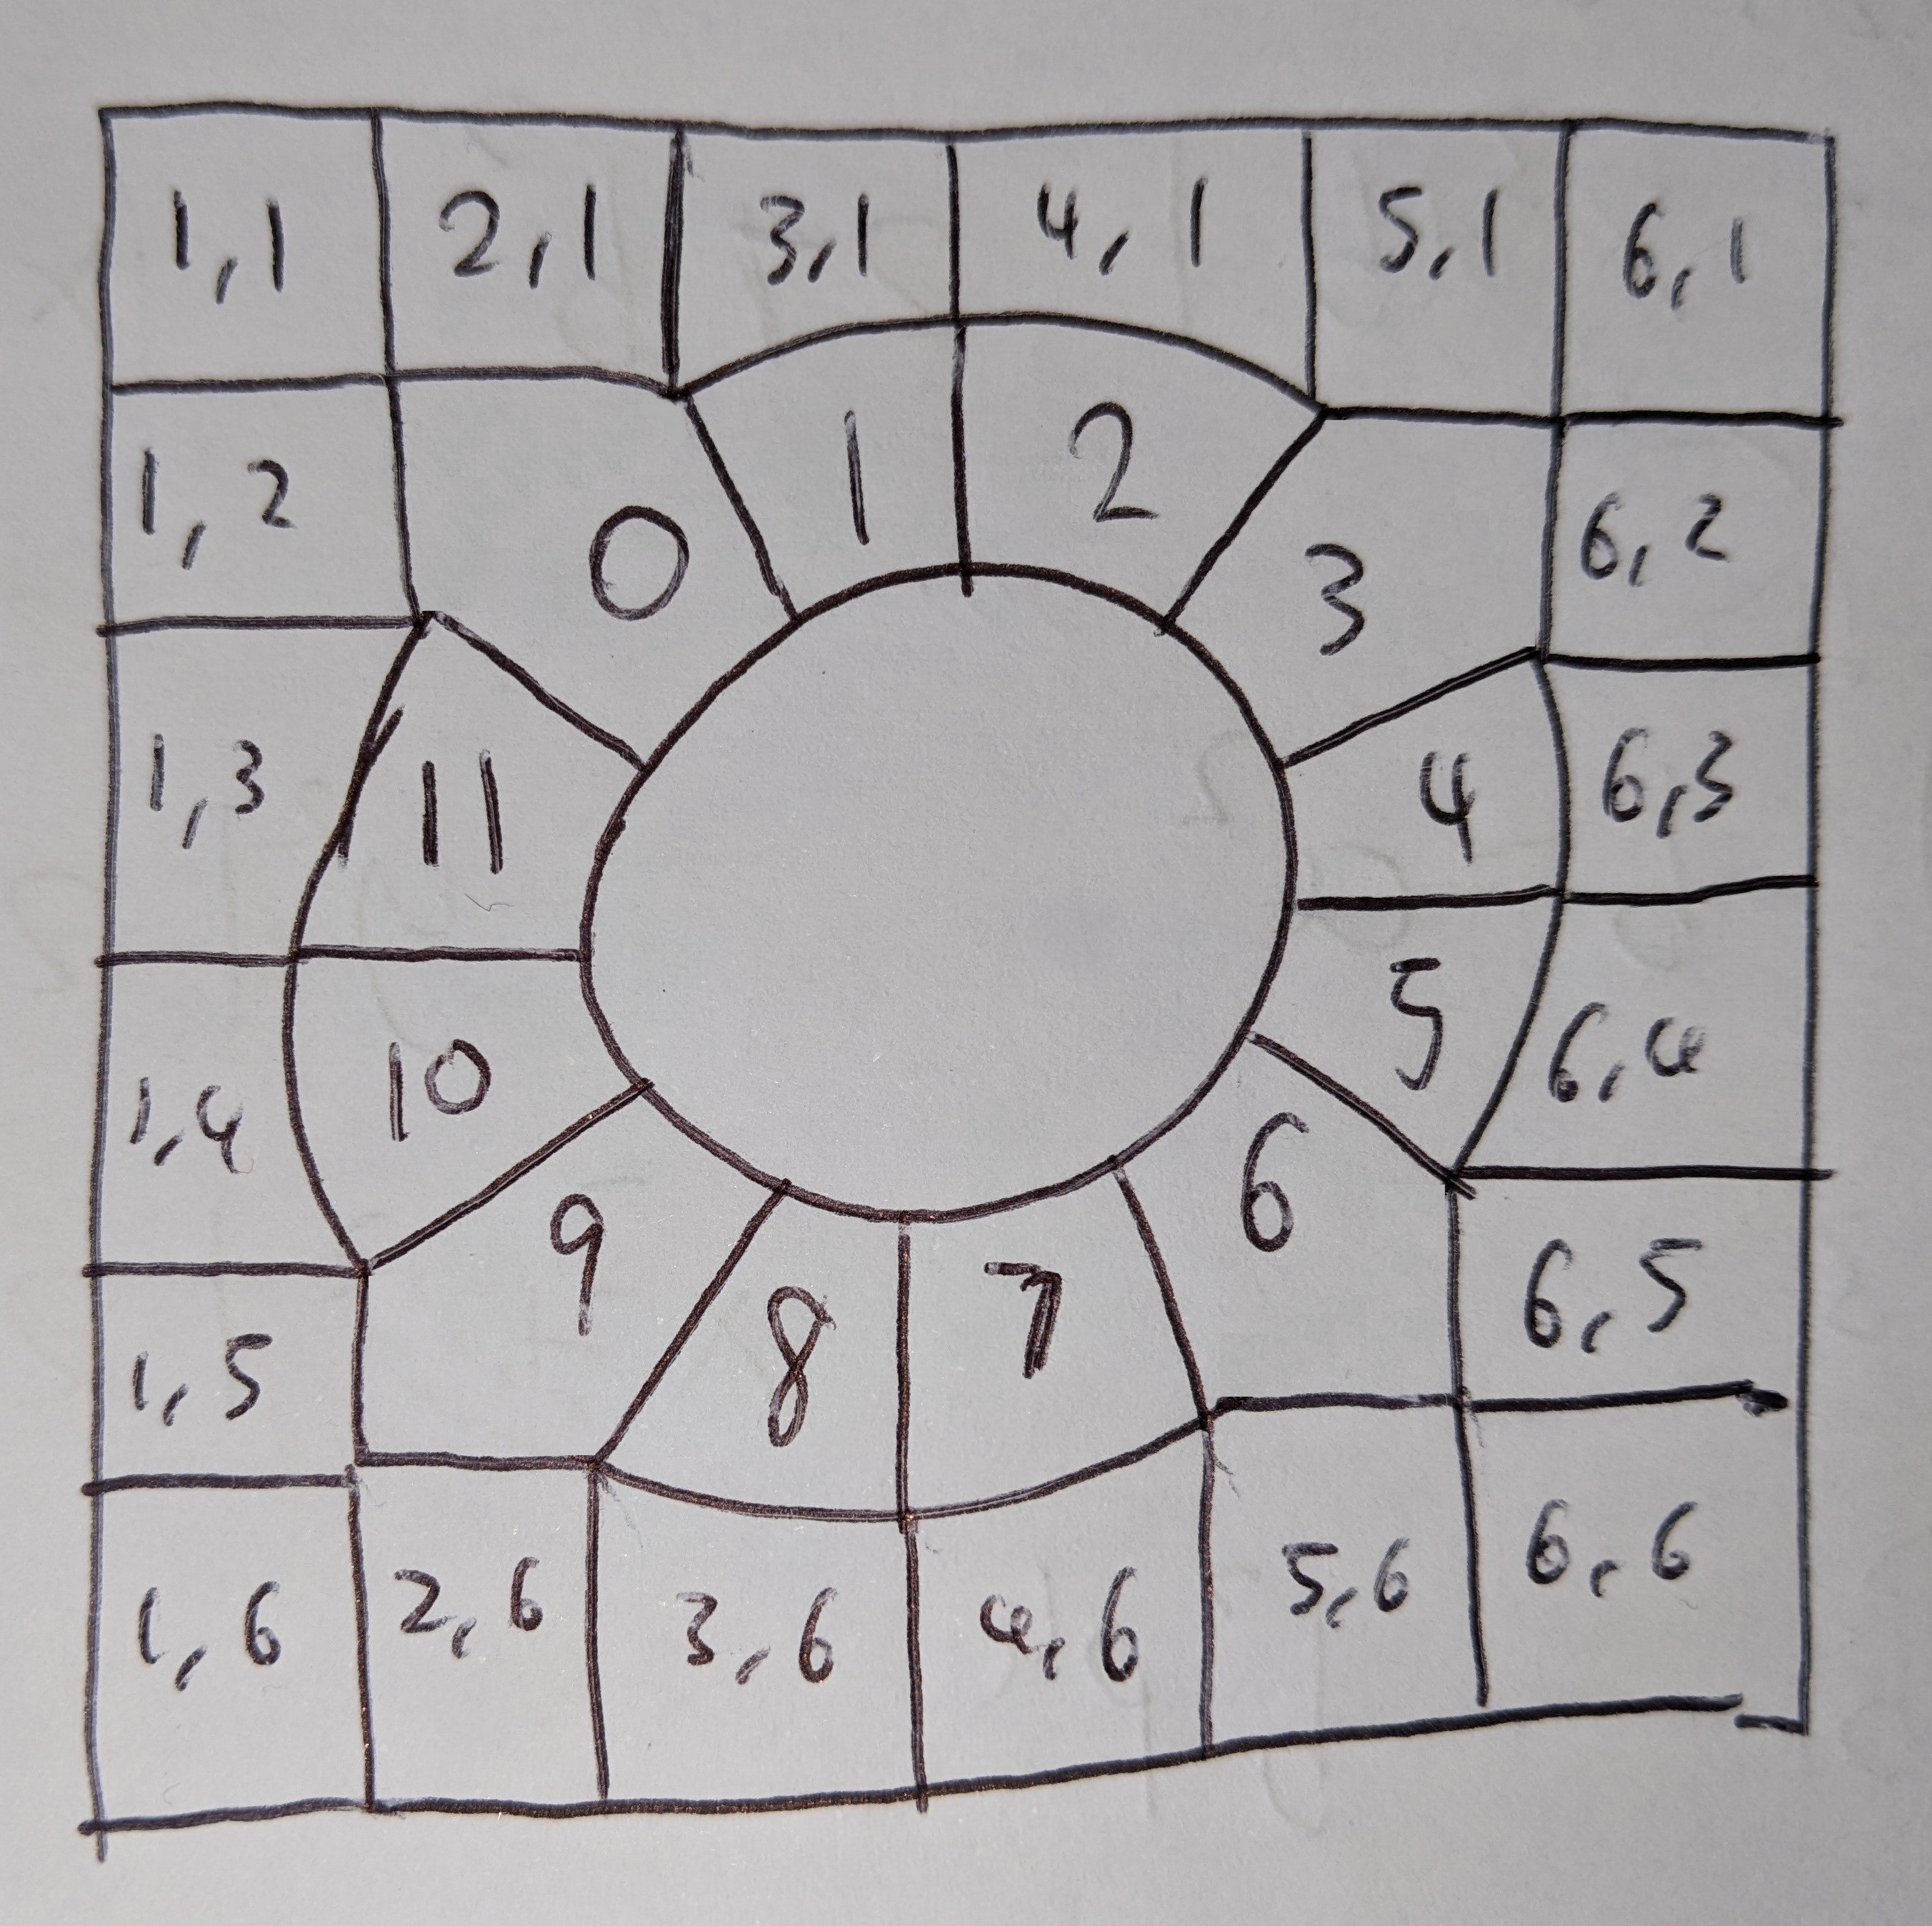 1,1 2,1 3,1 4,1 5,1 6,1
1,2 0 1 2 3 6,2
1,3 11 4 6,3
1,4 10 5 6,4
1,5 9 8 7 6 6,5
1,6 2,6 3,6 4,6 5,6 6,6